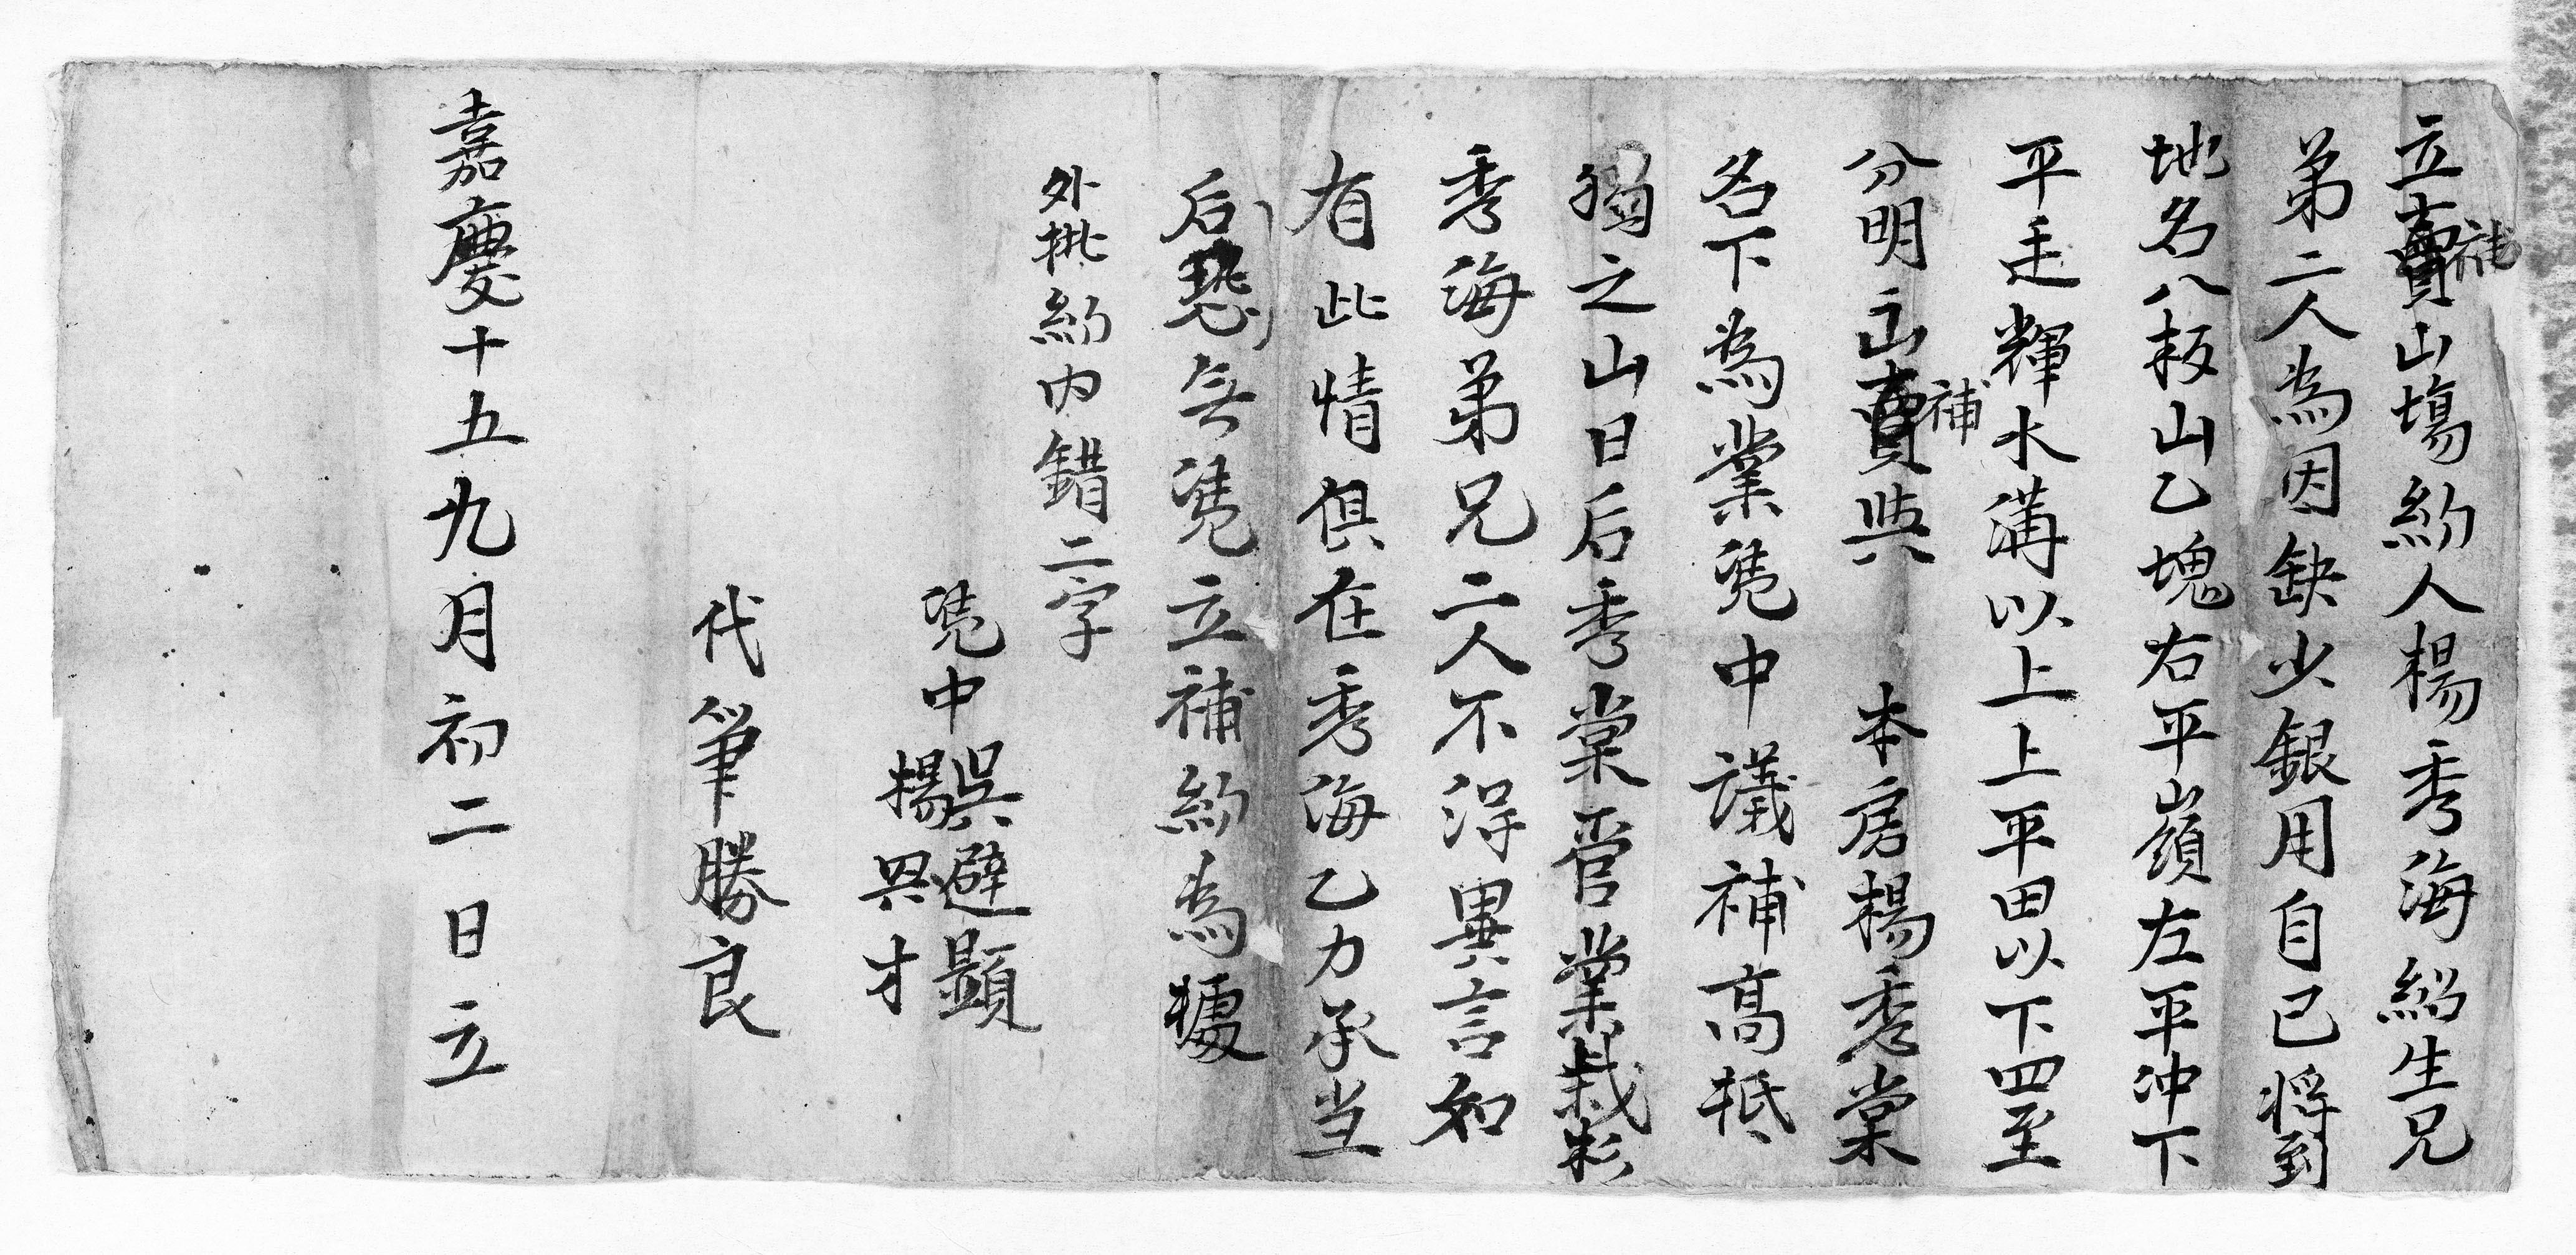 立賣補山塲約人楊秀海紹生兄
弟二人為因缺少銀用自己將到
地名八板山乙塊右平嶺左平冲下
平走輝水溝以上上平田以下四至
分明山賣補與 本房楊秀棠
名下為業凴中議補高抵
之山日后秀棠管業栽杉
秀海弟兄二人不得異言如
有此情俱在秀海乙力承当
后恐無凴立補約為據
外批約内錯二字
凴中吳避顕
楊思才
代筆勝良
嘉慶十五九月初二日立